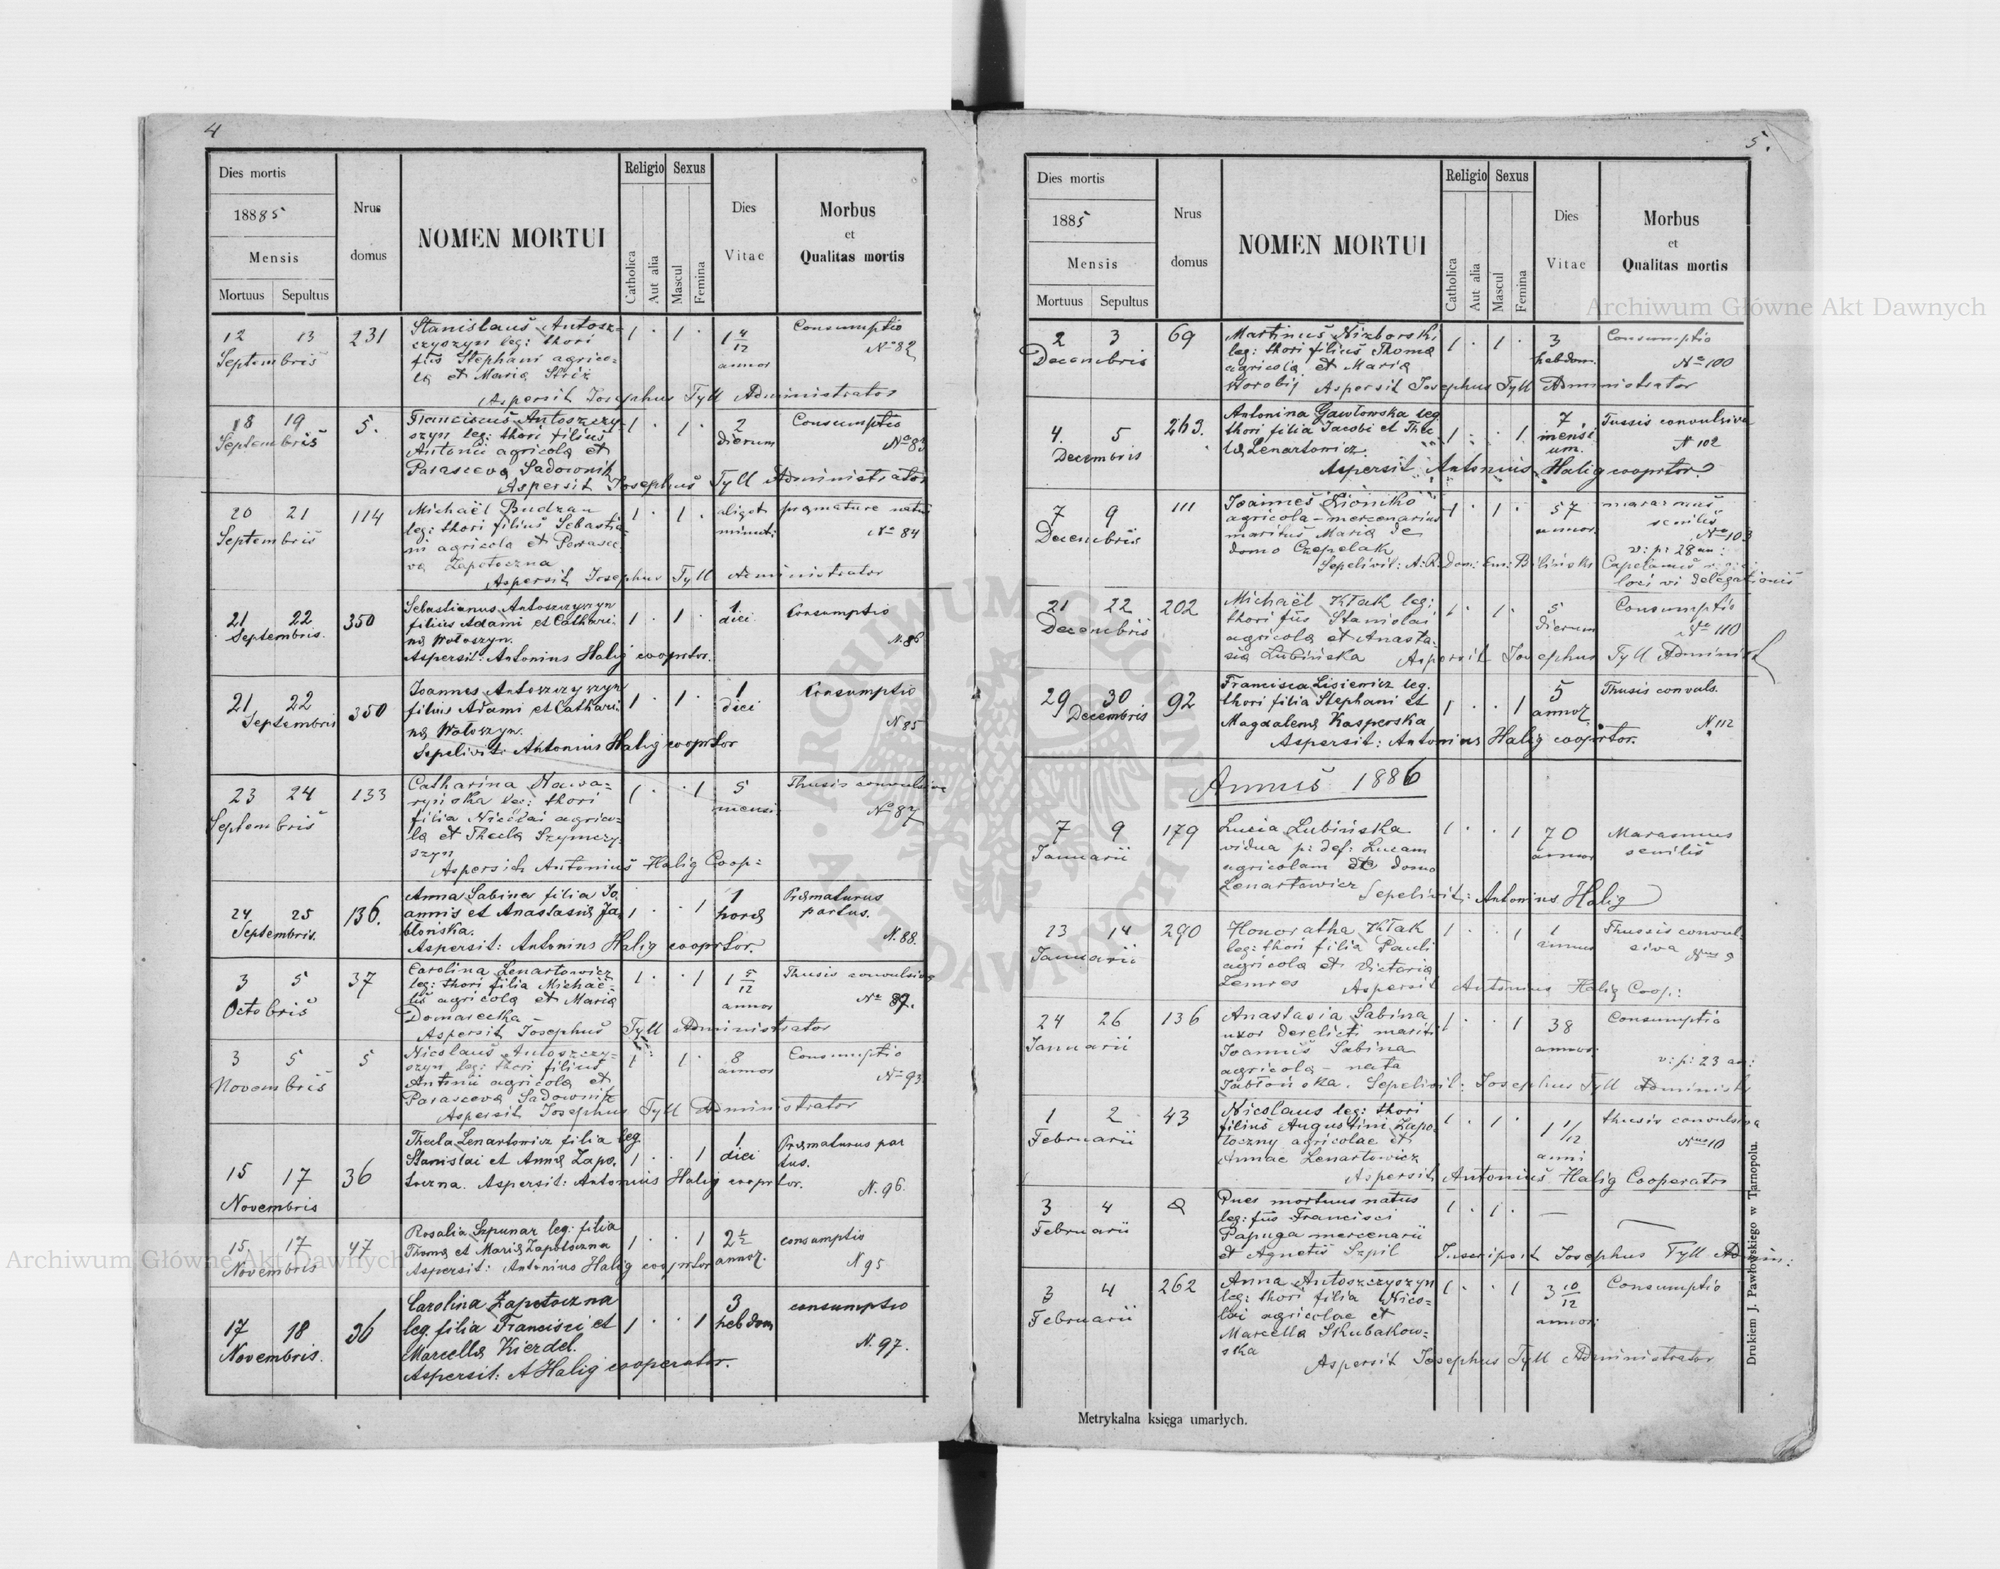 4
Dies mortis
1885
Mensis
Mortuus Sepultus
Nrus domus
NOMEN MORTUI
Religio
Catholica
Aut alia
Sexus
Mascul
Femina
Dies Vitae
Morbus
et
Qualitas mortis
12 13 231 Stanislaus Antosz= 1 . 1 . 1 4/12 Consumptio
Septembris czyszyn leg: thori annor No 82
fius Stephani agrico=
læ et Mariæ Striż
Aspersit Josephus Tyll Administrator
18 19 5. Franciscus Antoszczy= 1 . 1 . 2 Consumptio
Septembris szyn leg: thori filius dierum No 83
Antonii agricolæ et
Parascevæ Sadownik
Aspersit Josephus Tyll Administrator
20 21 114 Michaël Budzan 1 . 1 . aliqot præmature natus
Septembris leg: thori filius Sebastia= minut: No 84
ni agricolæ et Parasce=
væ Zapotoczna
Aspersit Josephus Tyll Administrator
21 22 350 Sebastianus Antoszczyszyn 1 . 1 . 1 Consumptio
Septembris. filius Adami et Cathari diei
næ Wołoszyn. N. 86
Aspersit: Antonius Halig cooprtor.
21 22 350 Joannes Antoszczyszyn 1 . 1 . 1 Consumptio
Septembris filius Adami et Cathari diei
næ Wołoszyn. N 85
Sepelivit: Antonius Halig cooprtor
23 24 133 Catharina Nawa= 1 . . 1 5 Thusis convulsiva
Septembris ryńska leg: thori mensi No 87
filia Nicolai agrico=
læ et Theclæ Szymczy=
szyn
Aspersit Antonius Halig Coop:
24 25 136. Anna Sabina filia Jo 1 . . 1 1 Præmaturus
Septembris. annis et Anastasiæ Ja horæ partus.
błońska. N. 88.
Aspersit: Antonius Halig cooprtor.
3 5 37 Carolina Lenartowicz 1 . . 1 1 5/12 Thusis convulsiva
Octobris leg: thori filia Michaë= annor No 89.
lis agricolæ et Mariæ
Domarecka
Aspersit Josephus Tyll Administrator
3 5 5 Nicolaus Antoszczy= 1 . 1 . 8 Consumptio
Novembris szyn leg: thori filius annor No 93
Antonii agricolæ et
Parascevæ Sadownik
Aspersit Josephus Tyll Administrator
15 17 36 Thecla Lenartowicz filia leg. 1 . . 1 1 Præmaturus par
Novembris Stanislai et Annæ Zapo= diei tus.
toczna. Aspersit: Antonius Halig cooprtor. N. 96.
15 17 47 Rosalia Szpunar leg: filia 1 . . 1 2 1/2 consumptio
Novembris Thomæ et Mariæ Zapotoczna annor. N 95
Aspersit: Antonius Halig cooprtor
17 18 36 Carolina Zapotoczna 1 . . 1 3 consumptio
Novembris. leg. filia Francisci et hebdom
Marcellæ Kierdel. N. 97.
Aspersit: A Halig cooperator.
5.
Dies mortis
1885
Mensis
Mortuus Sepultus
Nrus domus
NOMEN MORTUI
Religio
Catholica
Aut alia
Sexus
Mascul
Femina
Dies Vitae
Morbus
et
Qualitas mortis
2 3 69 Martinus Niżborski 1 . 1 . 3 Consumptio
Decembris leg: thori filius Thomæ hebdom. No 100
agricolæ et Mariæ
Worobij Aspersit Josephus Tyll Administrator
4. 5 263. Antonina Gawłowska leg 1 . . 1. 7 Tussis convulsiva
Decembris thori filia Jacobi et Thec mensi um. N 102
læ Lenartowicz.
Aspersit Antonius Halig cooprtor
7 9 111 Joannes 1 . 1 . 57 marasmus
Decembris agricola-mercenarius annor. senilis
maritus Mariæ de No 103
domo Czepelak v: p: 28 an:
Sepelivit: A. R. Dom: Em: Biliński Capelanus
loci vi delegationis
21 22 202 Michaël Kłak leg: 1 . 1 . 5 Consumptio
Decembris thori fius Stanislai dierum No 110
agricolæ et Anasta=
siæ Lubińska Aspersit Josephus Tyll Administ
29 30 92 Francisca Lisiewicz leg. 1 . . 1 5 Thusis convuls.
Decembris thori filia Stephani et annor
Magdalenæ Kasperska N 112
Aspersit: Antonius Halig cooprtor.
Annus 1886
7 9 179 Lucia Lubińska 1 . . 1 70 Marasmus
Januarii vidua p: def: Lucam annor senilis
agricolam de domo
Lenartowicz Sepelivit: Antonius Halig
13 14 290 Honoratha Kłak 1 . . 1 1 Thussis convul=
Januarii leg: thori filia Pauli annus siva Nrus 9
agricolæ et Victoriæ
Zemres Aspersit Antonius Halig Coop.:
24 26 136 Anastasia Sabina 1 . . 1 38 Consumptio
Januarii uxor derelicti mariti annor.
Joannis Sabina v: p: 23 an:
agricolæ - nata
Jabłońska. Sepelivit: Josephus Tyll Administr
1 2 43 Nicolaus leg: thori 1 . 1 . 1 1/12 thusis convulsiva
Februarii filius Augustini Zapo= anni Nrus 10
toczny agricolae et
Annae Lenartowicz
Aspersit Antonius Halig Cooperator
3 4 Pues mortuus natus 1 . 1 . —
Februarii leg: fius Francisci
Papuga mercenarii
et Agnetis Szpil Inscripsit Josephus Tyll Admin:
3 4 262 Anna Antoszczyszyn 1 . . 1 3 10/12 Consumptio
Februarii leg: thori filia Nico= annor:
lai agricolae et
Marcella Skubakow=
ska
Aspersit Josephus Tyll Administrator
Metrykalna księga umarłych.
Drukiem J. Pawłowskiego w Tarnopolu.
Archiwum Główne Akt Dawnych
Archiwum Główne Akt Dawnych
ARCHIWUM GŁÓWNE AKT DAWNYCH